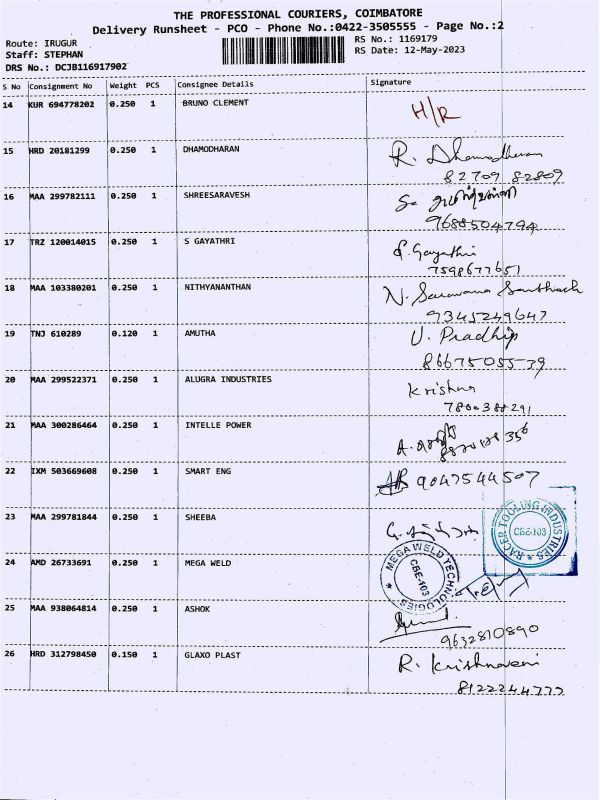 THE PROFESSIONAL COURIERS, COIMBATORE
Delivery Runsheet - PCO - Phone No.:0422-3505555 - Page No.:2
Route: IRUGUR
RS No.: 1169179
Staff: STEPHAN
RS Date: 12-May-2023
DRS No.: DCJB1169179O2
S No Consignment No Weight PCS Consignee Details Signature
14 KUR 694778202 0.250 1 BRUNO CLEMENT H/R
15 HRD 20181299 0.250 1 DHAMODHARAN R. Dhamodharan
82709 82809
16 MAA 299782111 0.250 1 SHREESARAVESH
9688504794
17 TRZ 120014015 0.250 1 S GAYATHRI S. Gayathri
7598677651
18 MAA 103380201 0.250 1 NITHYANANTHAN N. Saravana
9345249647
19 TNJ 610289 0.120 1 AMUTHA U. Pradhip
8667505539
20 MAA 299522371 0.250 1 ALUGRA INDUSTRIES Krishna
7800388291
21 MAA 300286464 0.250 1 INTELLE POWER
22 IXM 503669608 0.250 1 SMART ENG 9047544507
23 MAA 299781844 0.250 1 SHEEBA
RACER TOOLING INDUSTRIES
CBE-103
24 AMD 26733691 0.250 1 MEGA WELD
MEGA WELD TECHNOLOGIES
CBE-103
25 MAA 938064814 0.250 1 ASHOK
9632810890
26 HRD 312798450 0.150 1 GLAXO PLAST R. Krishnaveni
8122244777